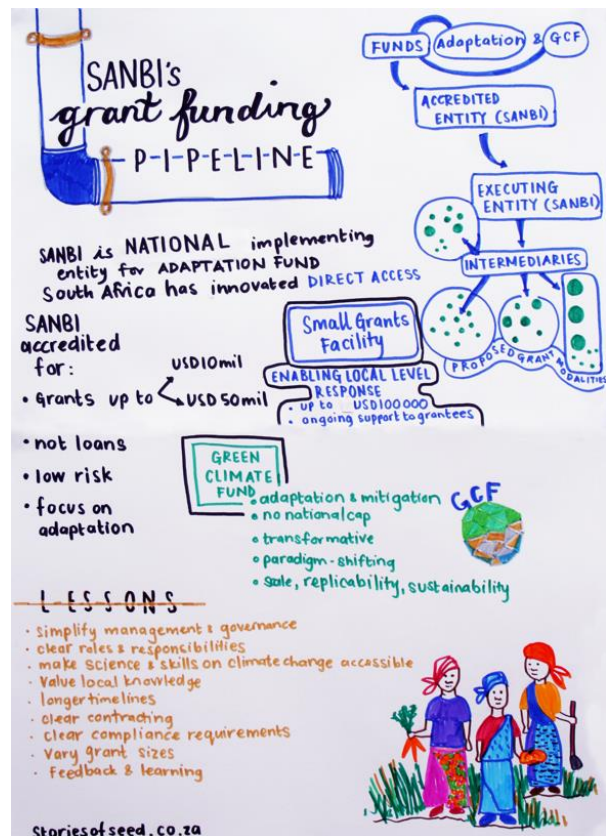 SANBI's
grant funding
PIPELINE
FUNDS Adaptation & GCF
ACCREDITED
ENTITY (SANBI)
EXECUTING
ENTITY (SANBI)
INTERMEDIARIES
PROPOSED GRANT MODALITIES
SANBI is NATIONAL implementing
entity for ADAPTATION FUND
South Africa has innovated DIRECT ACCESS
SANBI
accredited
for:
• Grants up to
USD10mil
USD 50mil
• not loans
• low risk
• focus on
adaptation
Small Grants
Facility
ENABLING LOCAL LEVEL
RESPONSE
• up to USD100 000
• ongoing support to grantees
GREEN
CLIMATE
FUND
GCF
• adaptation & mitigation
• no national cap
• transformative
• paradigm-shifting
• scale, replicability, sustainability
LESSONS
• simplify management & governance
• clear roles & responsibilities
• make science & skills on climate change accessible
• Value local knowledge
• longer timelines
• clear contracting
• Clear compliance requirements
• Vary grant sizes
• feedback & learning
storiesofseed.co.za